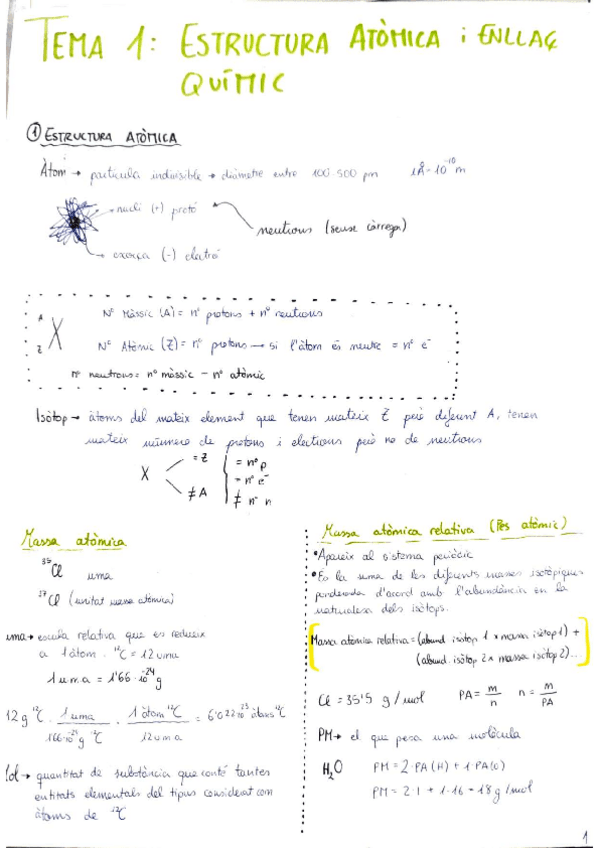 TEMA 1: ESTRUCTURA ATÒMICA i ENLLAÇ
QUÍMIC
① ESTRUCTURA ATÒMICA
Àtom → partícula indivisible → diàmetre entre 100-500 pm 1Å = 10⁻¹⁰ m
nucli (+) protó
neutrons (sense càrrega)
escorça (-) electró
A
X
Z
Nº Màssic (A) = nº protons + nº neutrons
Nº Atòmic (Z) = nº protons → si l'àtom és neutre = nº e⁻
nº neutrons = nº màssic - nº atòmic
Isòtop → àtoms del mateix element que tenen mateix Z però diferent A, tenen
mateix número de protons i electrons però no de neutrons
X
= Z
≠ A
= nº p
= nº e⁻
≠ nº n
Massa atòmica
³⁵Cl uma
³⁷Cl (unitat massa atòmica)
uma → escala relativa que es redueix
a 1 àtom. ¹²C = 12 uma
1 uma = 1'66·10⁻²⁴ g
12 g ¹²C · 1 uma / 1'66·10⁻²⁴ g · 1 àtom ¹²C / 12 uma = 6'022·10²³ àtoms ¹²C
Mol → quantitat de substància que conté tantes
entitats elementals del tipus considerat com
àtoms de ¹²C
Massa atòmica relativa (Pes atòmic)
• Apareix al sistema periòdic
• És la suma de les diferents masses isotòpiques
ponderada d'acord amb l'abundància en la
naturalesa dels isòtops.
Massa atòmica relativa = (abund. isòtop 1 x massa isòtop 1) +
(abund. isòtop 2 x massa isòtop 2)...
Cl = 35'5 g/mol PA = m/n n = m/PA
PM → el que pesa una molècula
H₂O PM = 2·PA(H) + 1·PA(O)
PM = 2·1 + 1·16 = 18 g/mol
1